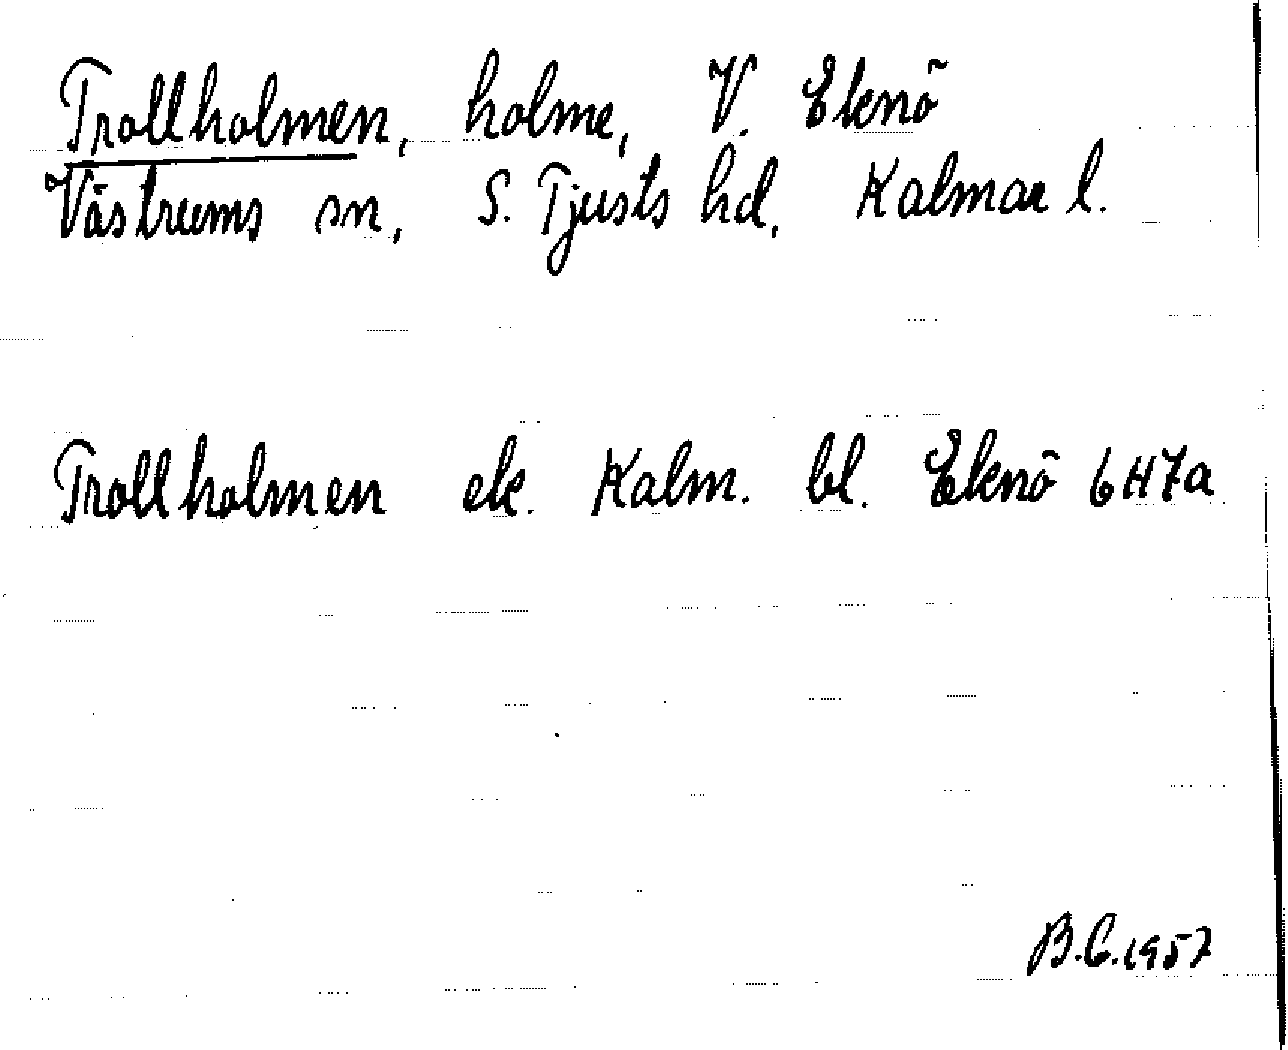 Trollholmen, holme, V. Eknö
Västrums sn, S. Tjusts hd, Kalmar l.
Trollholmen ek. Kalm. bl. Eknö 6H7a
B.C. 1957